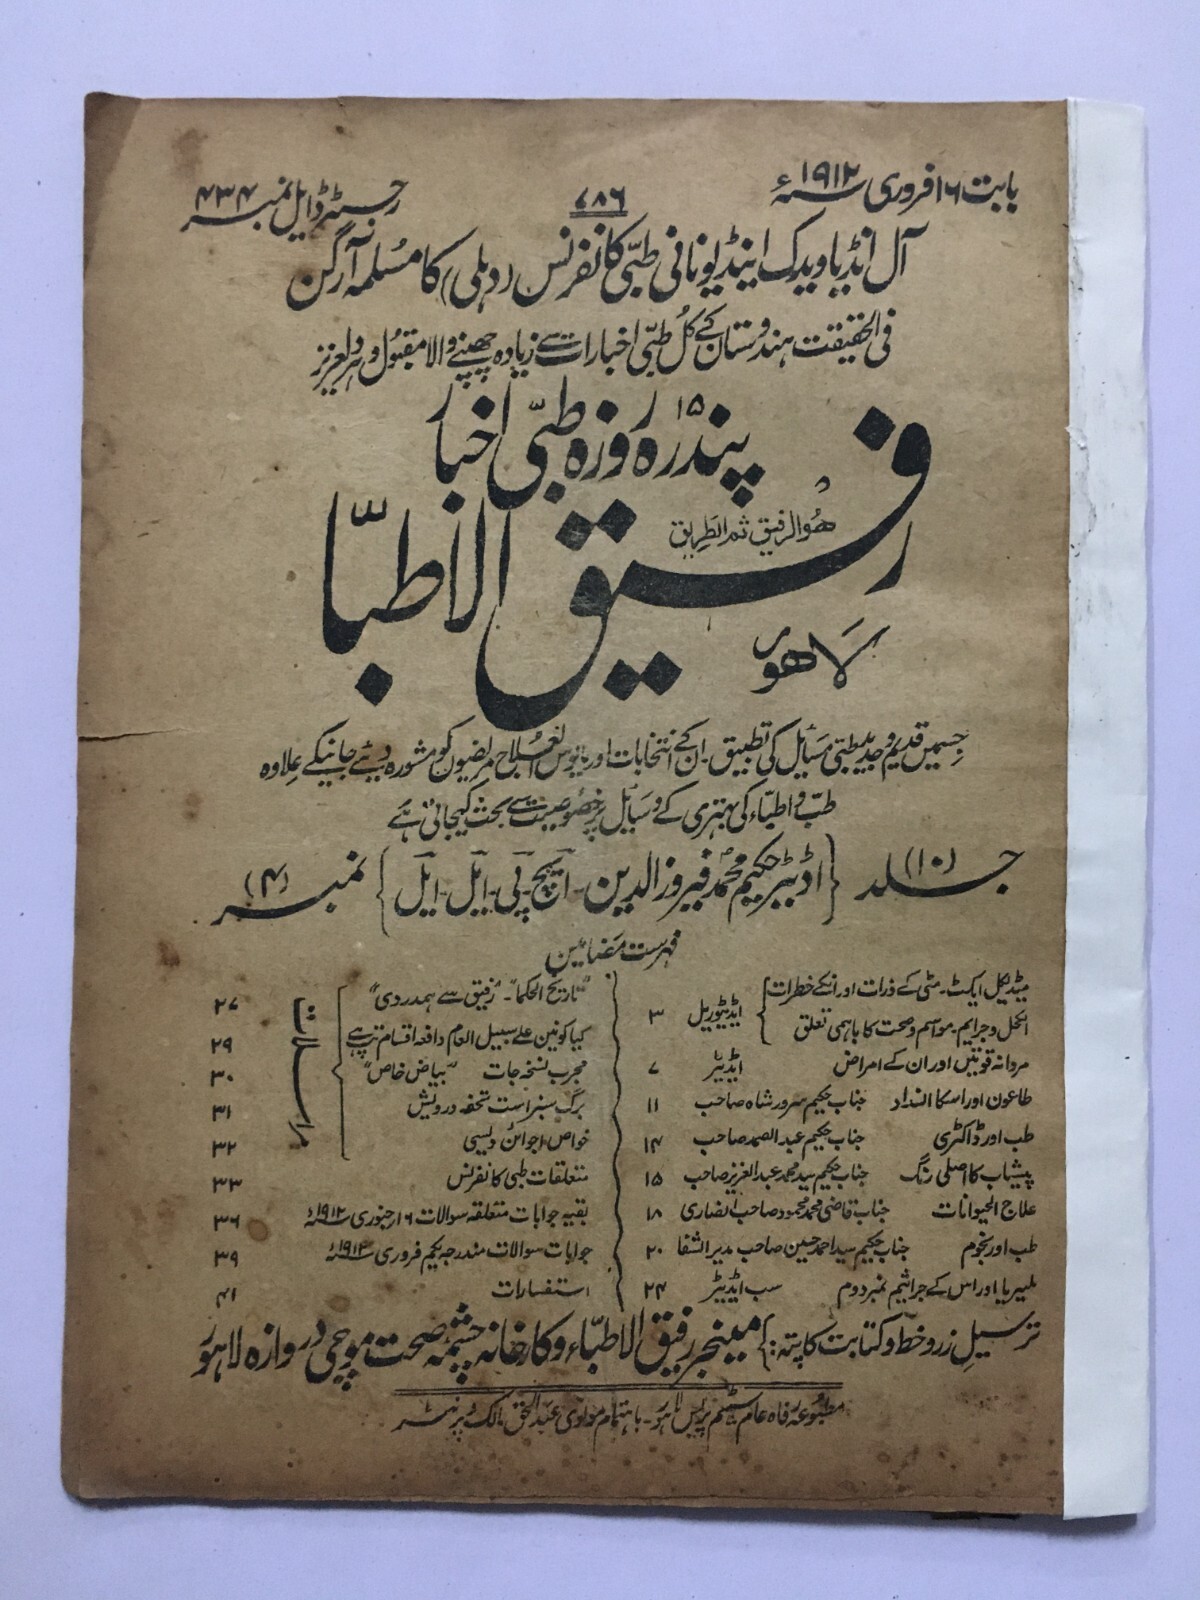 بابت ۱۶ فروری ۱۹۱۲ء
۷۸۶
رجسٹرڈ ایل نمبر ۴۳۴
آل انڈیا ویدک اینڈ یونانی طبّی کانفرنس (دہلی) کا مُسلمہ آرگن
فی الحقیقت ہندوستان کے کُل طبّی اخبارات سے زیادہ چھپنے والا مقبول و ہردلعزیز
پندرہ ۱۵ روزہ طبّی اخبار
ھُوالرفیق ثم الطریق
رفیق الاطبّا
لاھور
جسمیں قدیم و جدید طبّی مسَایل کی تطبیق۔ ان کے انتخابات اور مایوس العلاج مریضوں کو مشورہ دیئے جانیکے عِلاوہ
طبّ و اطبّاء کی بہتری کے وسَایل پر خصُوصیت سے بحث کیجاتی ہے
جلد (۱۰) {اڈیٹر حکیم محمد فیروزالدین۔ ایچ۔ پی۔ ایل۔ ایل} نمبر (۴)
فہرست مَضامین
میڈیکل ایکٹ۔ مٹی کے ذرات اور انکے خطرات
الکحل و جرایم۔ مواسم و صحت کا باہمی تعلق } ایڈیٹوریل ۳
مردانہ قوتیں اور ان کے امراض ایڈیٹر ۷
طاعون اور اسکا انسداد جناب حکیم سرور شاہ صاحب ۱۱
طب اور ڈاکٹری جناب حکیم عبدالصمد صاحب ۱۴
پیشاب کا اصلی رنگ جناب حکیم سید محمد عبدالعزیز صاحب ۱۵
علاج الحیوانات جناب قاضی محمد محمود صاحب انصاری ۱۸
طب اور نجوم جناب حکیم سید احمد حسین صاحب مدیر الشفا ۲۰
ملیریا اور اس کے جراثیم نمبر دوم سب ایڈیٹر ۲۴
"تاریخ الحکما"۔ "رفیق سے ہمدردی" ۲۷
کیا کونین علے سبیل العام دافعہ اقسام تپ ہے ۲۹
مجرب نسخہ جات "بیاض خاص" ۳۰
برگ سبز است تحفہ درویش ۳۱
خواص اجوائن دیسی ۳۲
مراسلات
متعلقات طبی کانفرنس ۳۳
بقیہ جوابات متعلقہ سوالات ۱۶ جنوری ۱۹۱۲ء ۳۶
جوابات سوالات مندرجہ یکم فروری ۱۹۱۲ء ۳۹
استفسارات ۴۱
ترسیلِ زر و خط و کتابت کا پتہ:} مینجر رفیق الاطبّاء و کارخانہ چشمہ صحت موچی دروازہ لاہور
مطبُوعہ رفاہ عام سٹیم پریس لاہور۔ باہتمام مولوی عبدالحق مالک و پرنٹر